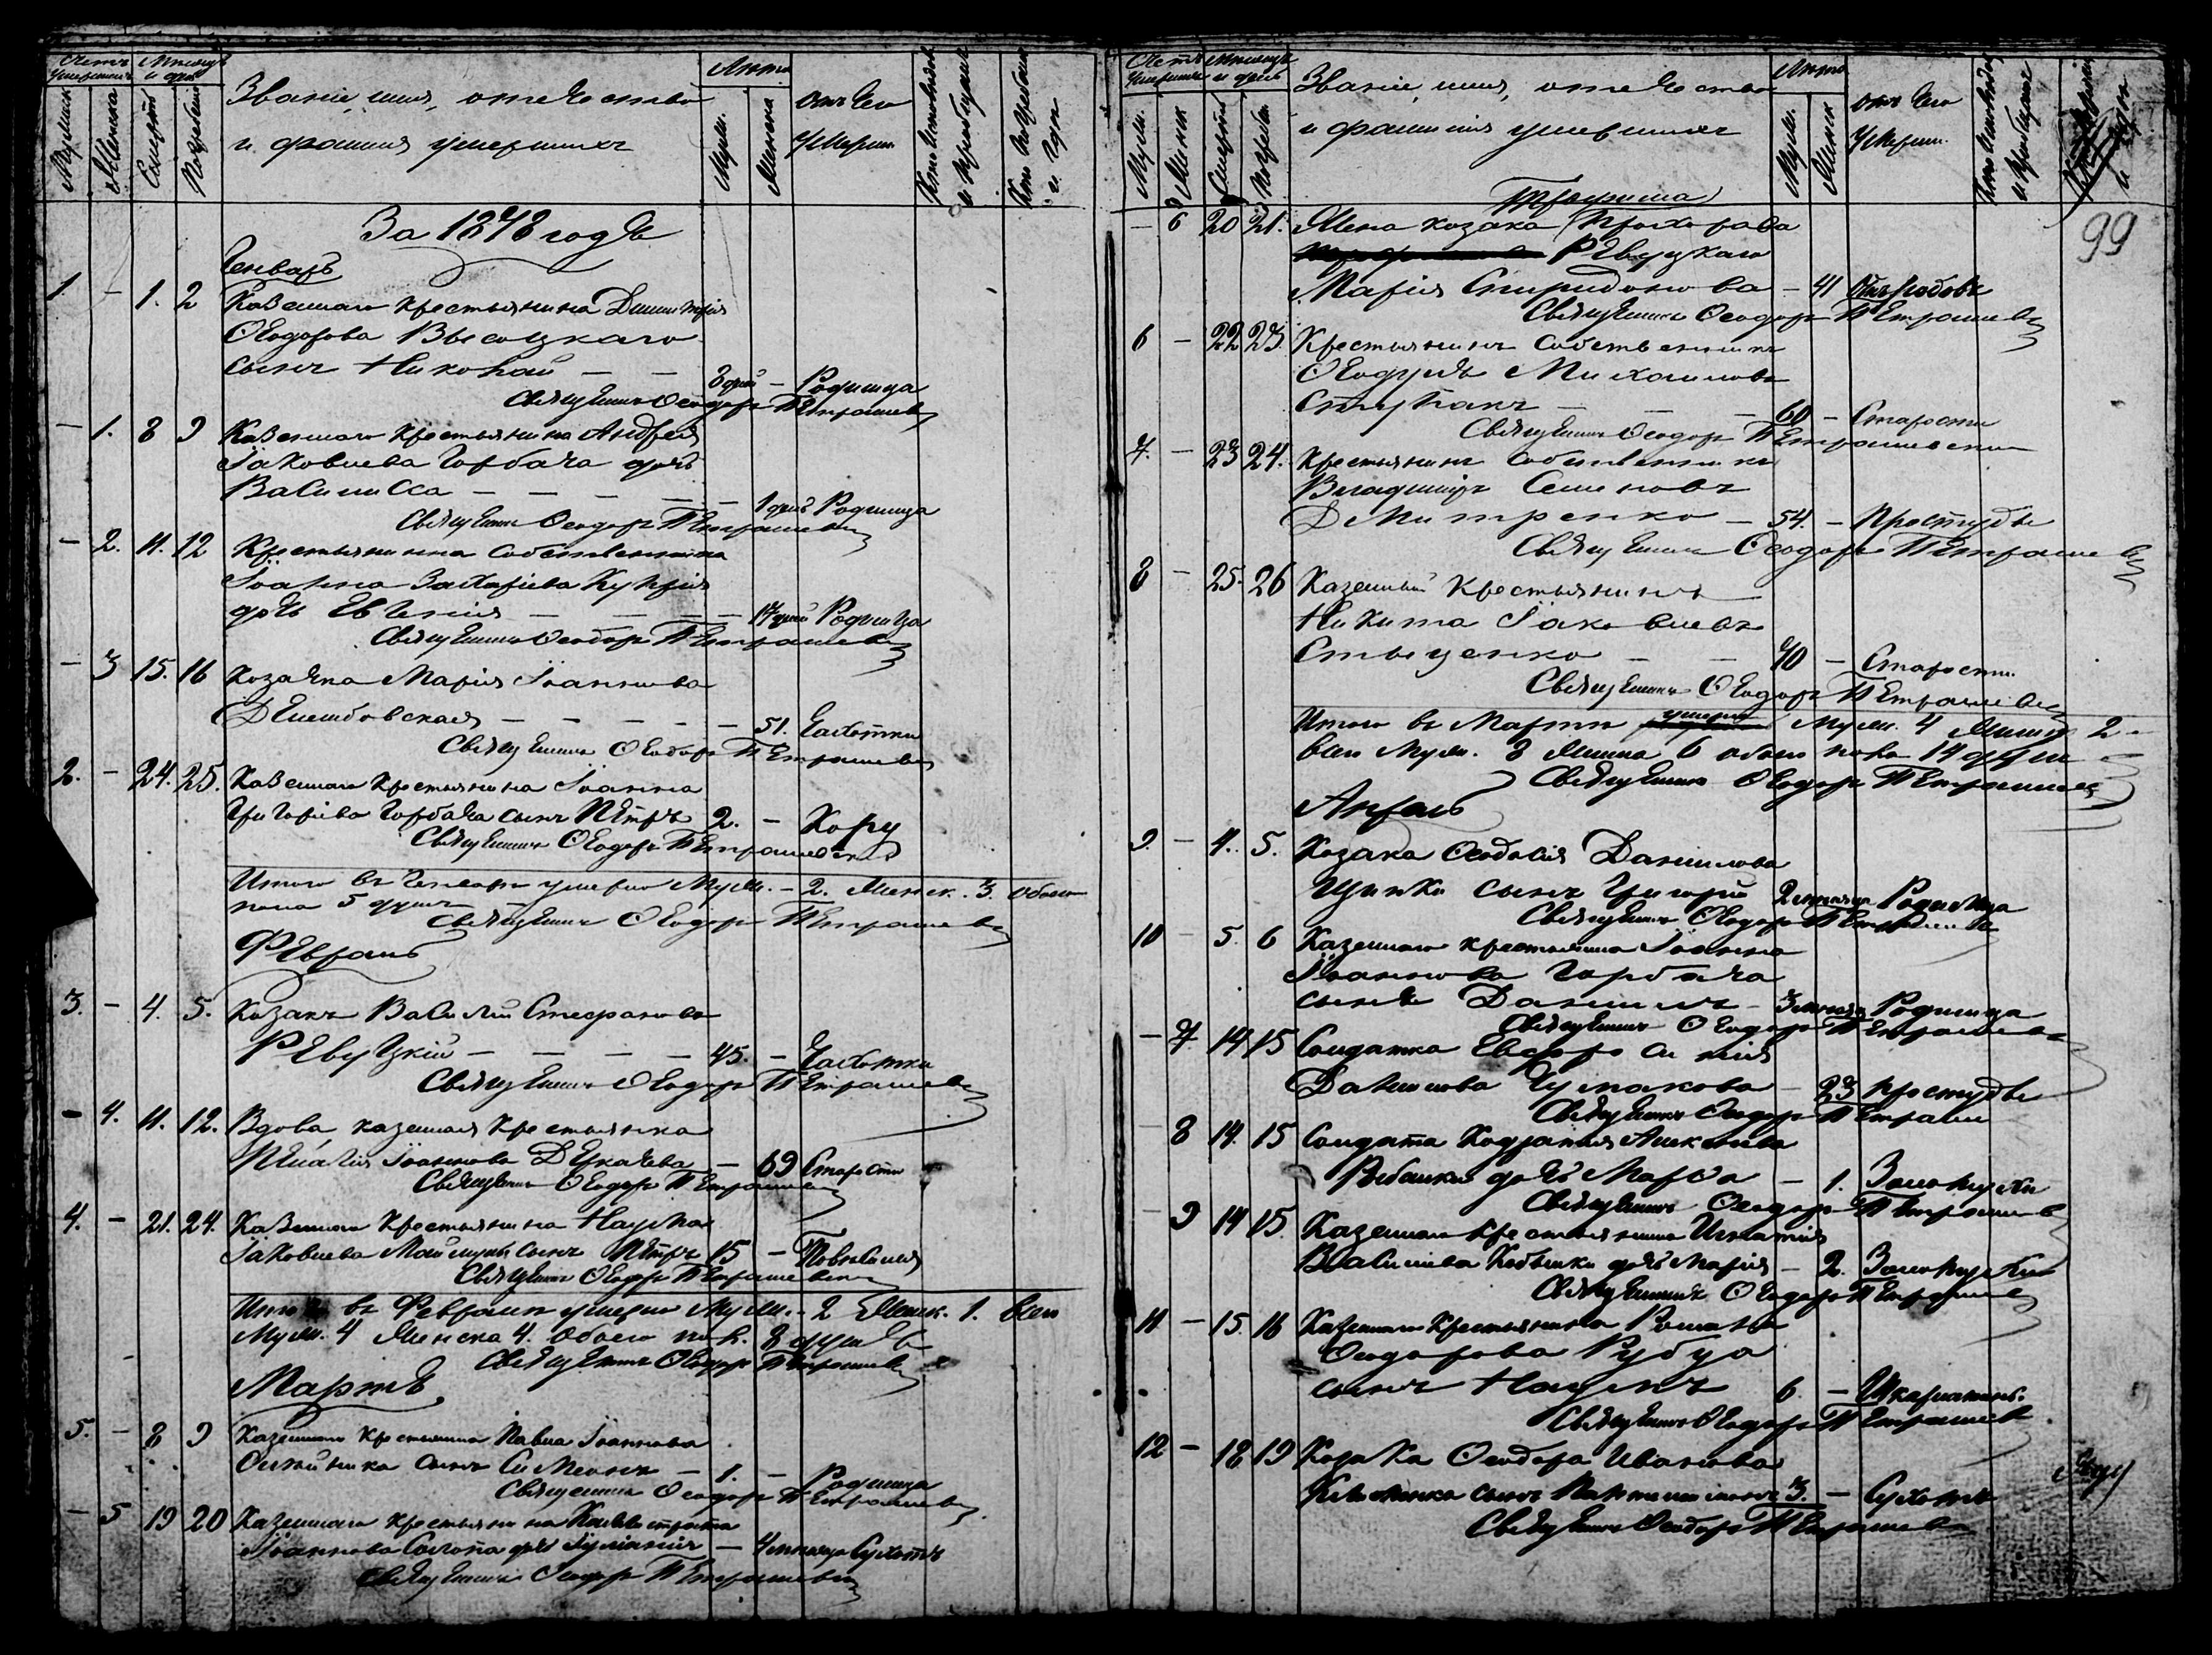 Счетъ умершихъ
Мѣсяцъ и день
Званіе, имя, отечество
и фамилія умершихъ
Лѣта
отъ чего
умеръ
Мужеска
Женска
Смерти
Погребенія
Муж.
Женска
Кто исповѣдов.
и пріобщалъ
Кто погребалъ
и гдѣ
За 1878 годъ
Генварь
1. – 1. 2 Казеннаго крестьянина Димитрія
Ѳеодорова Высоцкаго
сынъ Николай – – 8 дней – Родимца
Священникъ Ѳеодоръ Петрашев
– 1. 8 9 Казеннаго крестьянина Андрея
Іаковлева Горбача дочь
Василисса – – – – 1 день Родимца
Священникъ Ѳеодоръ Петрашев
– 2. 11. 12 Крестьянина собственника
Іоанна Захаріева Купрія
дочь Евгенія – – – 17 дней Родимца
Священникъ Ѳеодоръ Петрашев
– 3 15. 16 Козачка Марія Іоаннова
– – – – – 51. Чахотки
Священникъ Ѳеодоръ Петрашев
2. – 24. 25. Казеннаго крестьянина Іоанна
Григоріева Горбача сынъ Петръ 2. – Кору
Священникъ Ѳеодоръ Петрашевскій
Итого въ Генваре умерло Муж. – 2. Женск. 3. обоего
пола 5 душъ
Священникъ Ѳеодоръ Петрашев
Февраль
3. – 4. 5. Козакъ Василій Стефановъ
Ревуцкій – – – – 45. – Чахотки
Священникъ Ѳеодоръ Петрашев
– 4. 11. 12. Вдова, казенная крестьянка
Пелагія Іоаннова – 69 Старости
Священникъ Ѳеодоръ Петрашев
4. – 21. 24. Казеннаго крестьянина Наума
Іаковлева сынъ Петръ 15 –
Священникъ Ѳеодоръ Петрашевск
Итого въ Февралѣ умерло Муж. – 2 Женск. 1. всего
Муж. 4 Женска 4. обоего пол. 8 душъ
Священникъ Ѳеодоръ Петрашев
Мартъ
5. – 8 9 Казеннаго крестьянина Павла Іоаннова
сынъ Симеонъ – 1. – Родимца
Священникъ Ѳеодоръ Петрашев
– 5 19 20 Казеннаго крестьянина Каллистрата
Іоаннова дочь Іуліанія – 4 мѣсяца Сухотъ
Священникъ Ѳеодоръ Петрашев
Счетъ умершихъ
Мѣсяцъ и день
Званіе, имя, отечество
и фамилія умершихъ
Лѣта
отъ чего
умеръ
Муж.
Женск
Смерти
Погребен.
Муж.
Женск
Кто исповѣдов
и пріобщалъ
и гдѣ
99
Трофима
– 6 20 21. Жена козака Прохорова
Ревуцкаго
Марія Спиридонова – 41 Отъ родовъ
Священникъ Ѳеодоръ Петрашев
6 – 22 23 Крестьянинъ собственникъ
Ѳеодулъ Михаиловъ
Ступакъ – – – 60 – Старости
Священникъ Ѳеодоръ Петрашевскій
7. – 23 24. Крестьянинъ собственникъ
Владиміръ Семеновъ
Дмитренко – 54. – Простуды
Священникъ Ѳеодоръ Петрашев
8 – 25. 26 Казенный крестьянинъ
Никита Іаковлевъ
Стыценко – – 70 – Старости
Священникъ Ѳеодоръ Петрашев
Итого въ Мартѣ умерло Муж. 4 Женск 2
всего Муж. 8 Женска 6 обоего пола 14 душъ
Священникъ Ѳеодоръ Петрашев
Апрель
9. – 4. 5. Козака Ѳеодосія Даніилова
сынъ Григорій 2 мѣсяца Родимца
Священникъ Ѳеодоръ Петрашев
10 – 5. 6 Казеннаго крестьянина Іоанна
Іоаннова Горбача
сынъ Даніилъ – 3 мѣсяца Родимца
Священникъ Ѳеодоръ Петрашев
– 7. 14 15 Солдатка Евфросинія
Даніилова Чумакова – 23 Простуды
Священникъ Ѳеодоръ Петраш
– 8 14. 15 Солдата Кодрата Алексѣева
дочь Марѳа – 1. Золотухи
Священникъ Ѳеодоръ Петрашев
– 9 14 15. Казеннаго крестьянина Игнатія
Василіева дочь Марія – 2. Золотухи
Священникъ Ѳеодоръ Петрашев
11 – 15. 16 Казеннаго крестьянина Романа
Ѳеодорова Рубца
сынъ Наумъ 6 – Шкарлатины
Священникъ Ѳеодоръ Петрашев
12 – 18 19 Козака Ѳеодора Иванова
сынъ 3. – Сухотъ
Священникъ Ѳеодоръ Петрашев